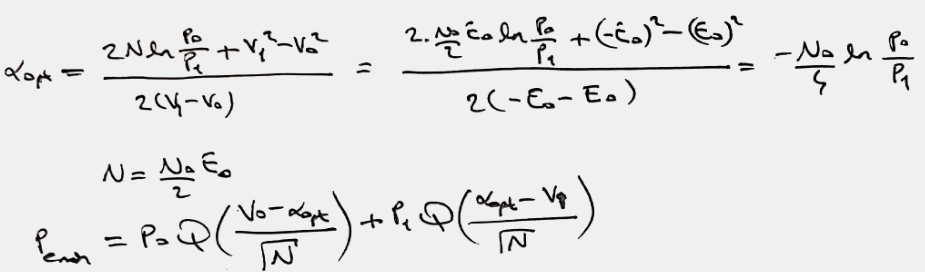 α_opt = (2N ln(P₀/P₁) + V₁² − V₀²) / (2(V₁ − V₀)) = (2·(N₀/2) E₀ ln(P₀/P₁) + (−E₀)² − (E₀)²) / (2(−E₀ − E₀)) = −(N₀/4) ln(P₀/P₁)
N = (N₀/2) E₀
P = P₀ Q((V₀ − α_opt)/√N) + P₁ Q((α_opt − V₁)/√N)